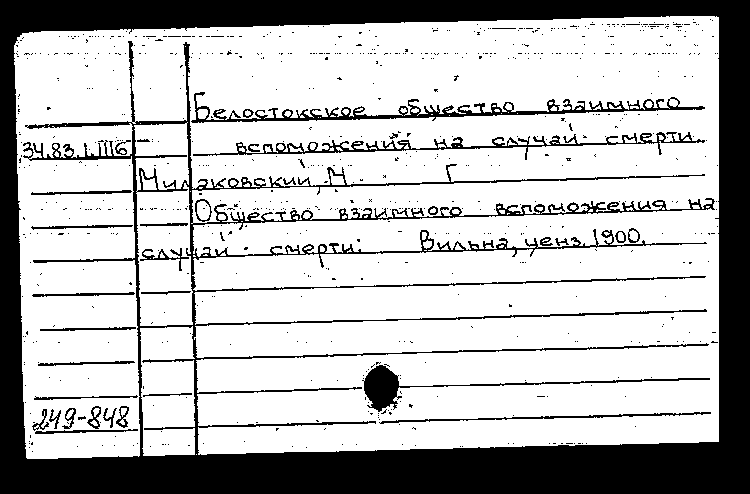 Белостокское общество взаимного
34.83.1.III6 вспоможения на случай смерти.
Милаковский, М Г
Общество взаимного вспоможения на
случай смерти. Вильна, ценз. 1900.
249-848